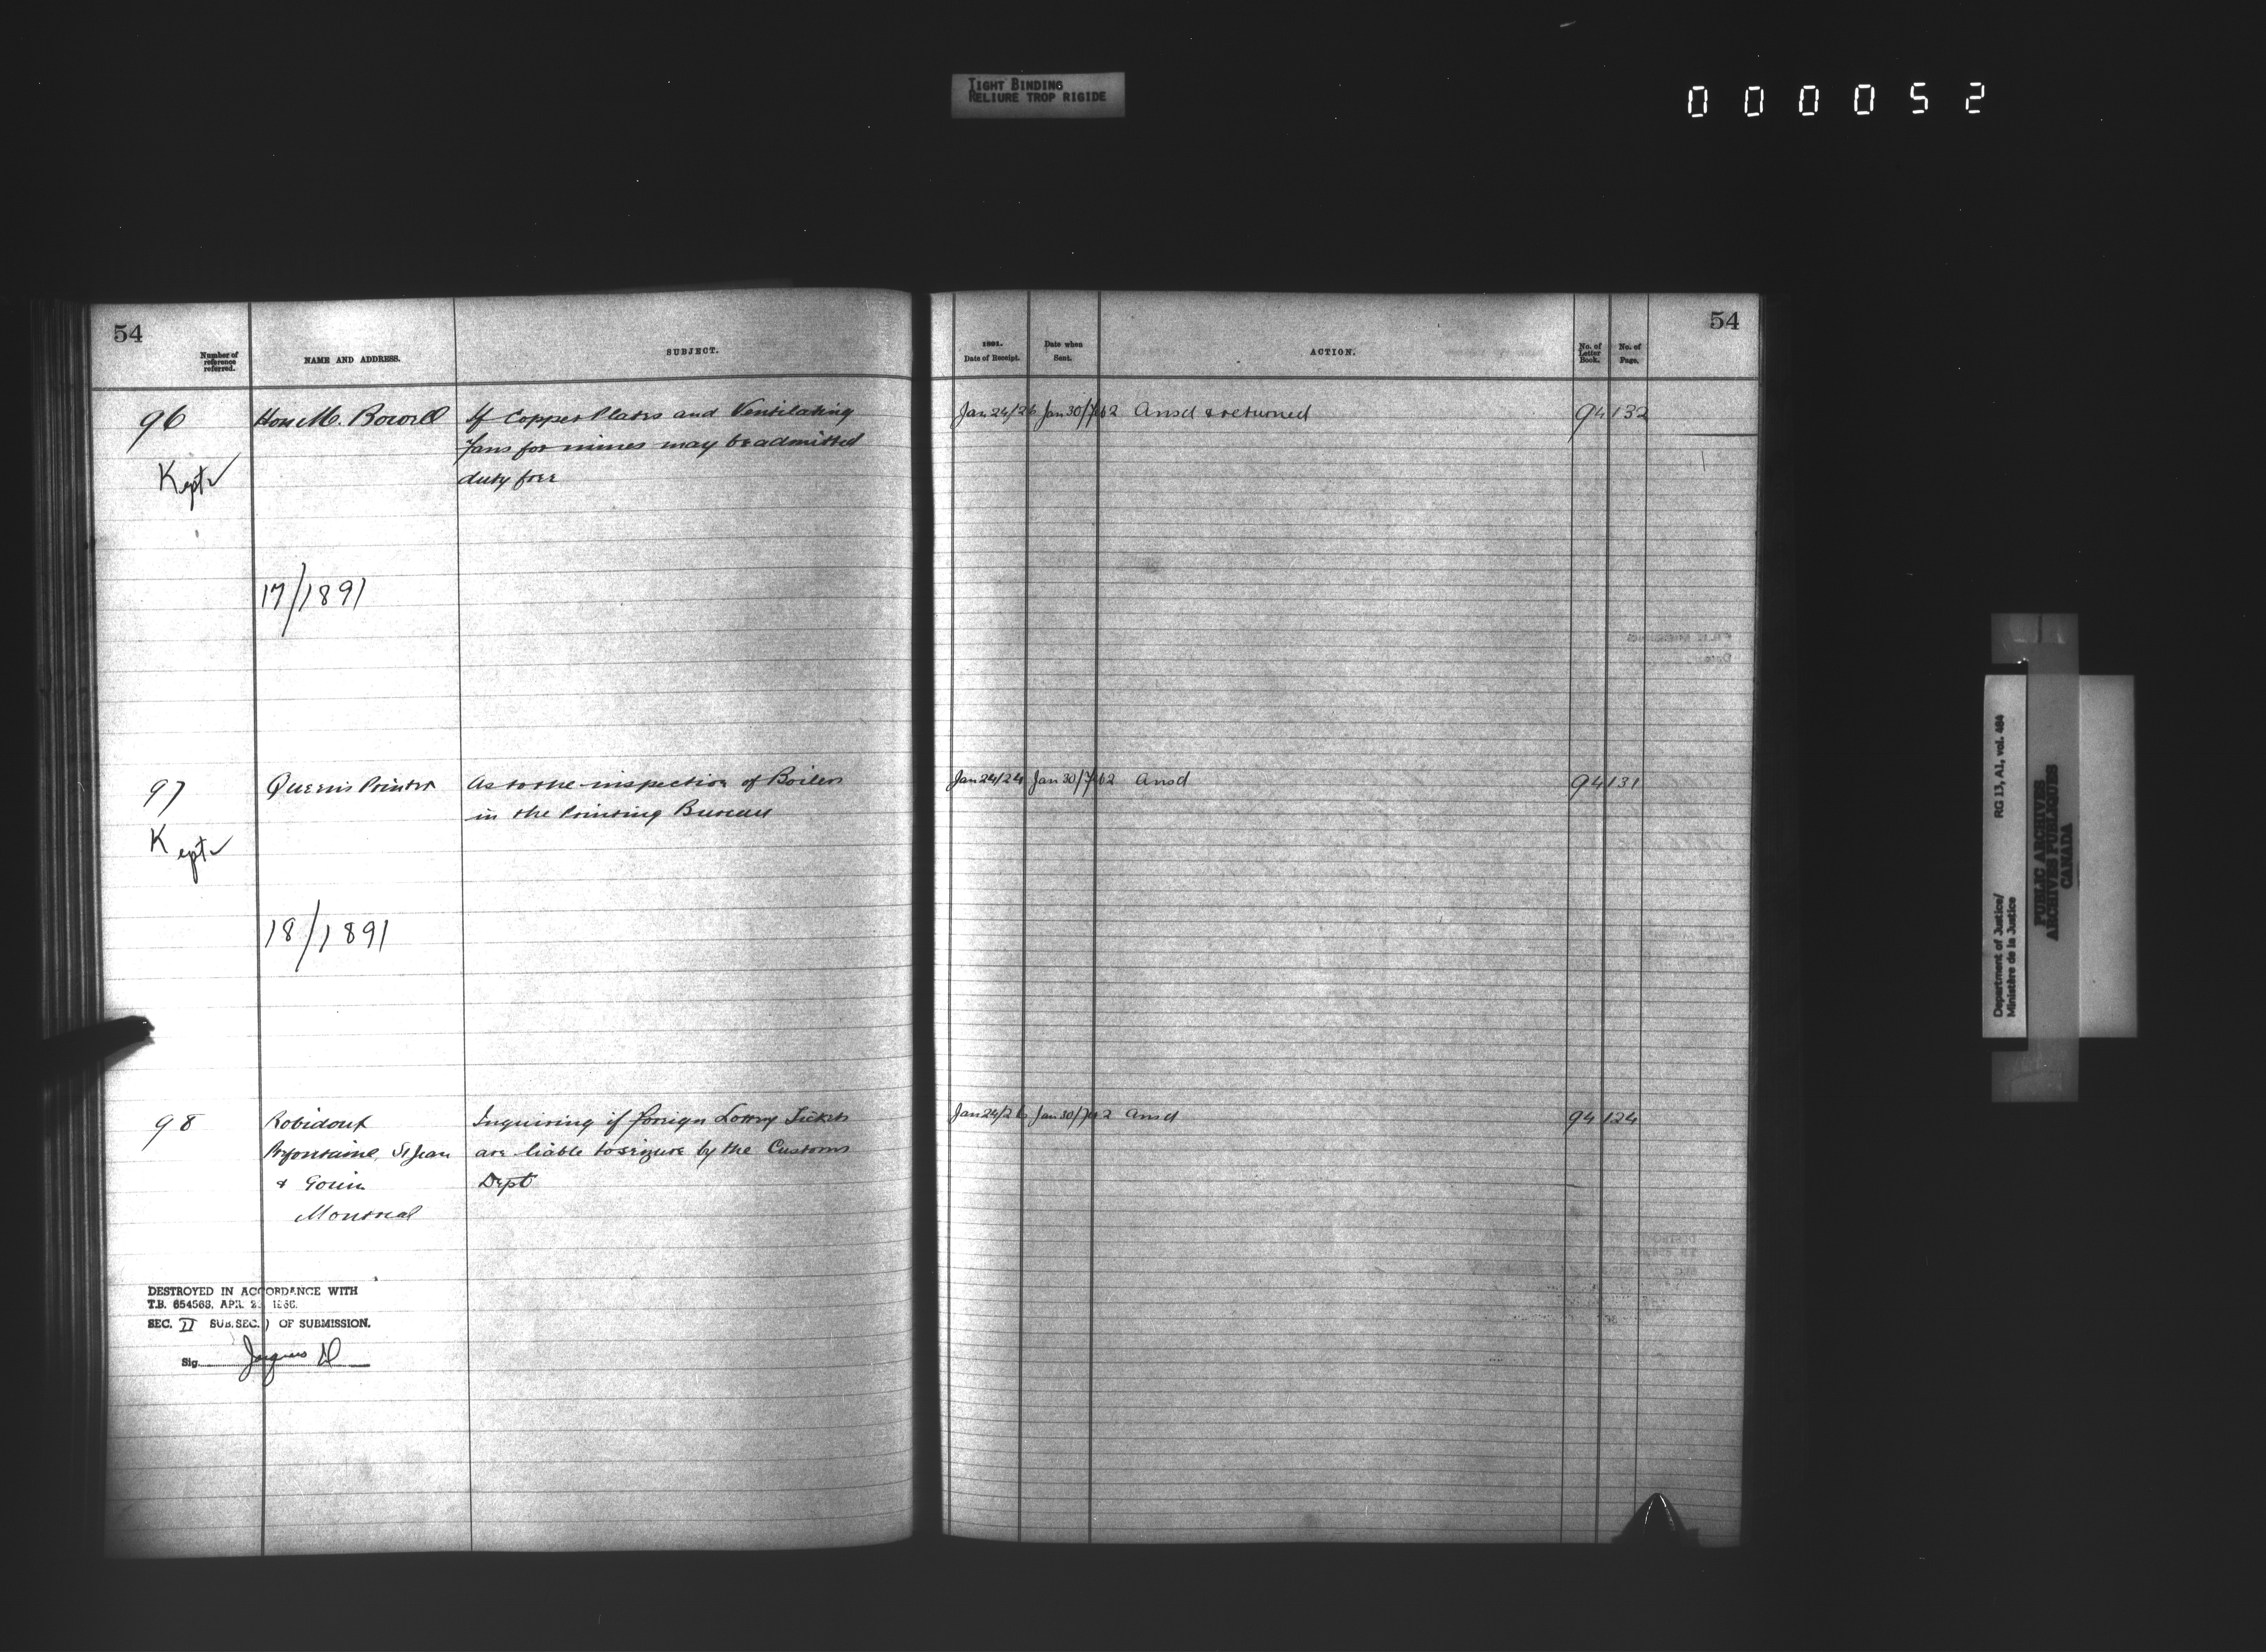 TIGHT BINDING
RELIURE TROP RIGIDE
000052
54
Number of reference referred.
NAME AND ADDRESS.
SUBJECT.
96
Hon M. Bowell
If Copper Plates and Ventilating
Fans for mines may be admitted
duty free
Kept
17/1891
97
Queen's Printer
As to the inspection of Boilers
in the Printing Bureau
Kept
18/1891
98
Robidoux
Inquiring if foreign Lottery Tickets
Prefontaine, St Jean
are liable to seizure by the Customs
& Gouin
Dept
Montreal
DESTROYED IN ACCORDANCE WITH
T.B. 654568, APR. 2
SEC. II SUB.SEC. ) OF SUBMISSION.
Sig. Jacques
54
1891.
Date of Receipt.
Date when Sent.
ACTION.
No. of Letter Book.
No. of Page.
Jan 24/26 Jan 30/Feb 2 Ansd & returned 94 132
Jan 24/24 Jan 30/Feb 2 Ansd 94 131
Jan 24/26 Jan 30/Feb 2 Ansd 94 124
Department of Justice/ RG 13, A1, vol. 484
Ministère de la Justice
PUBLIC ARCHIVES
ARCHIVES PUBLIQUES
CANADA